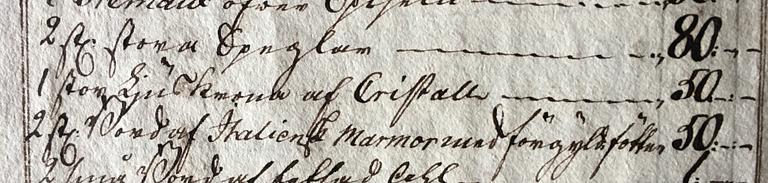 ofver
2 st. stora Speglar — „ 80.-.-
1 stor Ljus krona af Cristall — „ 50.-.-
2 st. Bord af Italiensk Marmor med förgylde fötter 50.-.-
2 små Bord af